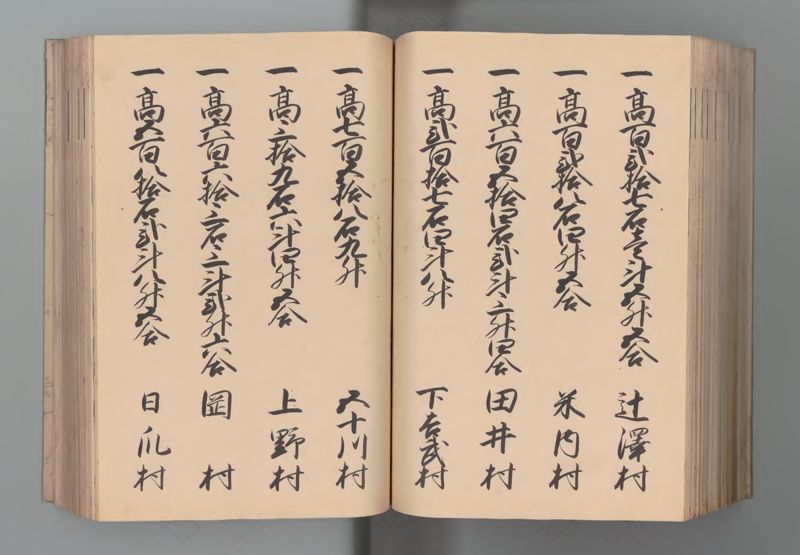 一高百弐拾七石壱斗五升五合 辻澤村
一高百弐拾八石四升五合 米内村
一高六百五拾四石弐斗三升四合 田井村
一高弐百拾七石四斗八升 下吉武村
一高七百五拾八石九升 五十川村
一高三拾九石六斗四升五合 上野村
一高六百六拾三石三斗弐升六合 岡村
一高五百八拾石弐斗八升五合 日爪村